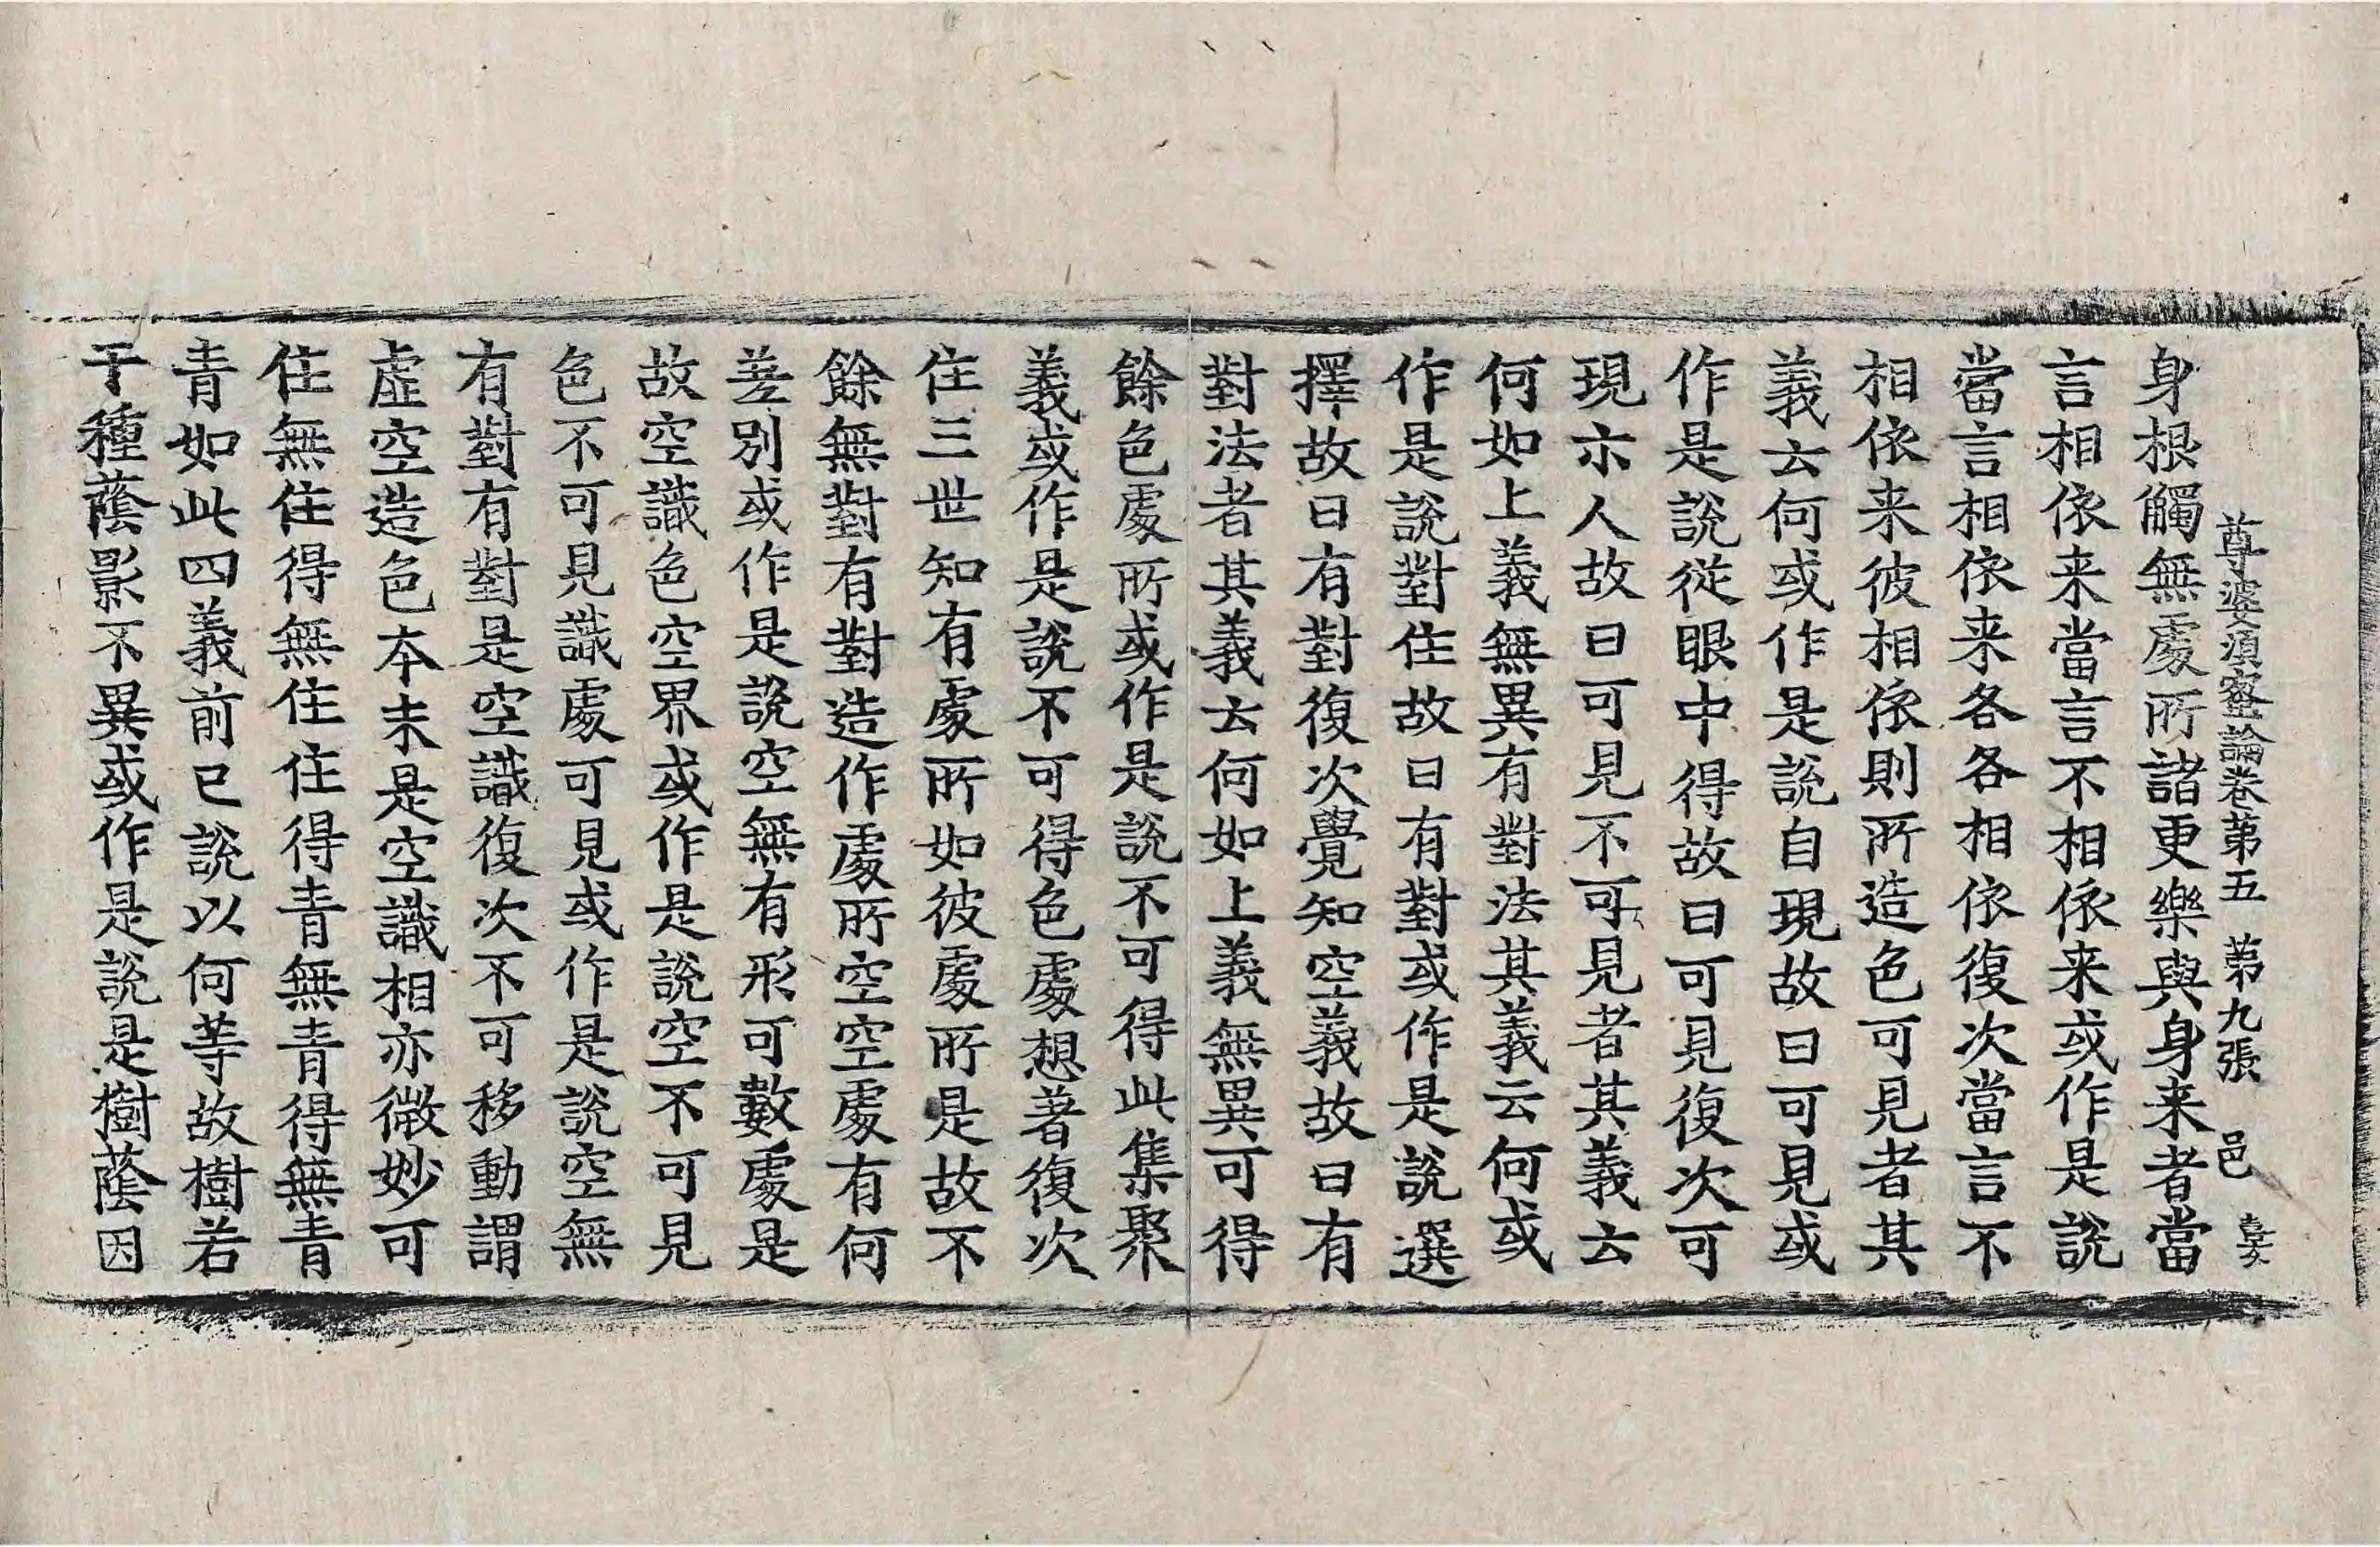 尊婆須蜜論卷第五　第九張　邑
身根觸無處所諸更樂與身来者當
言相依来當言不相依来或作是說
當言相依来各各相依復次當言不
相依来彼相依則所造色可見者其
義云何或作是說自現故曰可見或
作是說從眼中得故曰可見復次可
現示人故曰可見不可見者其義云
何如上義無異有對法其義云何或
作是說對住故曰有對或作是說選
擇故曰有對復次覺知空義故曰有
對法者其義云何如上義無異可得
餘色處所或作是說不可得此集聚
義或作是說不可得色處想著復次
住三世知有處所如彼處所是故不
餘無對有對造作處所空空處有何
差別或作是說空無有形可數處是
故空識色空界或作是說空不可見
色不可見識處可見或作是說空無
有對有對是空識復次不可移動謂
虛空造色本末是空識相亦微妙可
住無住得無住住得青無青得無青
青如此四義前已說以何等故樹若
干種蔭影不異或作是說是樹蔭因